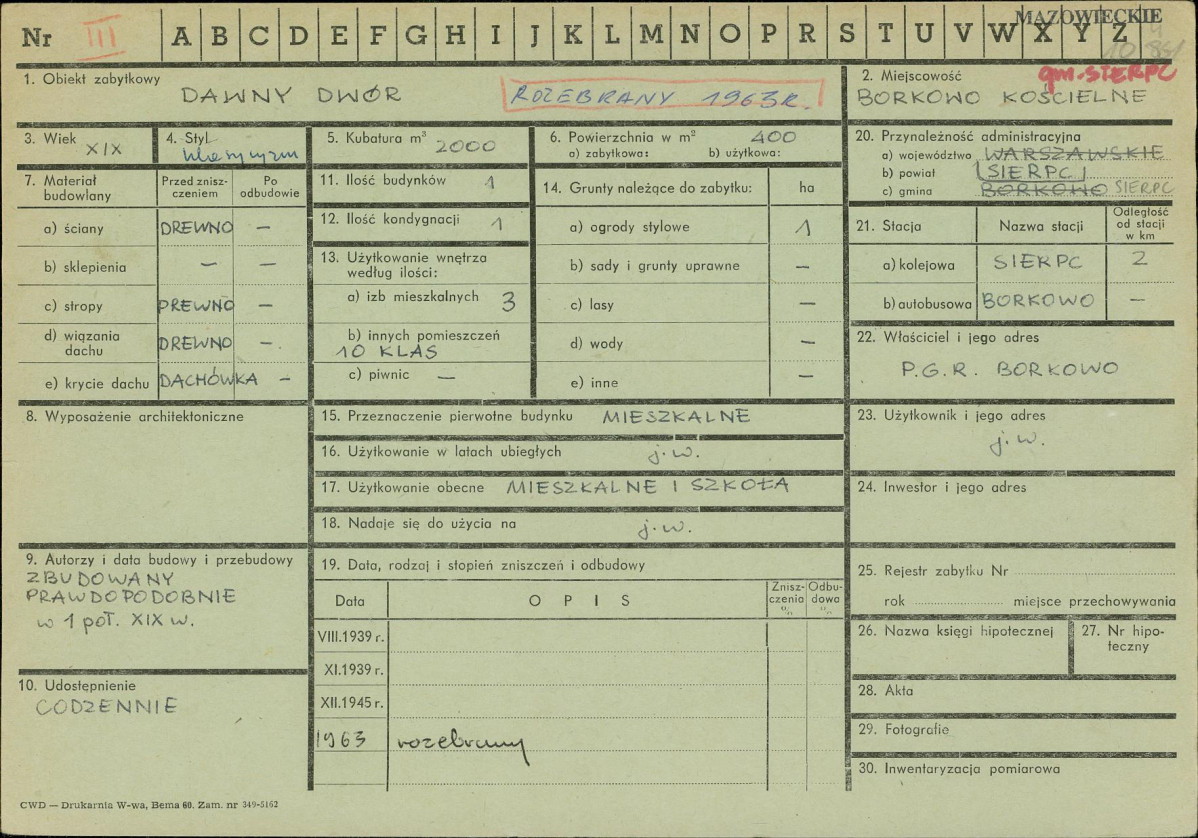 MAZOWIECKIE
Nr III A B C D E F G H I J K L M N O P R S T U V W X Y Z
gm. SIERPC
1. Obiekt zabytkowy
DAWNY DWÓR
ROZEBRANY 1963 R.
2. Miejscowość
BORKOWO KOŚCIELNE
3. Wiek
XIX
4. Styl
klasycyzm
5. Kubatura m³
2000
6. Powierzchnia w m² 400
a) zabytkowa: b) użytkowa:
20. Przynależność administracyjna
a) województwo WARSZAWSKIE
b) powiat SIERPC
c) gmina BORKOWO SIERPC
7. Materiał budowlany
Przed znisz-
czeniem
Po
odbudowie
a) ściany DREWNO –
b) sklepienia – –
c) stropy DREWNO –
d) wiązania
dachu DREWNO –
e) krycie dachu DACHÓWKA –
11. Ilość budynków 1
12. Ilość kondygnacji 1
13. Użytkowanie wnętrza
według ilości:
a) izb mieszkalnych 3
b) innych pomieszczeń
10 KLAS
c) piwnic –
14. Grunty należące do zabytku: ha
a) ogrody stylowe 1
b) sady i grunty uprawne –
c) lasy –
d) wody –
e) inne –
21. Stacja Nazwa stacji
Odległość
od stacji
w km
a) kolejowa SIERPC 2
b) autobusowa BORKOWO –
22. Właściciel i jego adres
P.G.R. BORKOWO
8. Wyposażenie architektoniczne
15. Przeznaczenie pierwotne budynku MIESZKALNE
16. Użytkowanie w latach ubiegłych j.w.
17. Użytkowanie obecne MIESZKALNE I SZKOŁA
18. Nadaje się do użycia na j.w.
23. Użytkownik i jego adres
j.w.
24. Inwestor i jego adres
9. Autorzy i data budowy i przebudowy
ZBUDOWANY
PRAWDOPODOBNIE
w 1 poł. XIX w.
10. Udostępnienie
CODZENNIE
19. Data, rodzaj i stopień zniszczeń i odbudowy
Data OPIS
Znisz-
czenia
%
Odbu-
dowa
%
VIII.1939 r.
XI.1939 r.
XII.1945 r.
1963 rozebrany
25. Rejestr zabytku Nr
rok miejsce przechowywania
26. Nazwa księgi hipotecznej
27. Nr hipo-
teczny
28. Akta
29. Fotografie
30. Inwentaryzacja pomiarowa
CWD — Drukarnia W-wa, Bema 60. Zam. nr 349-5162